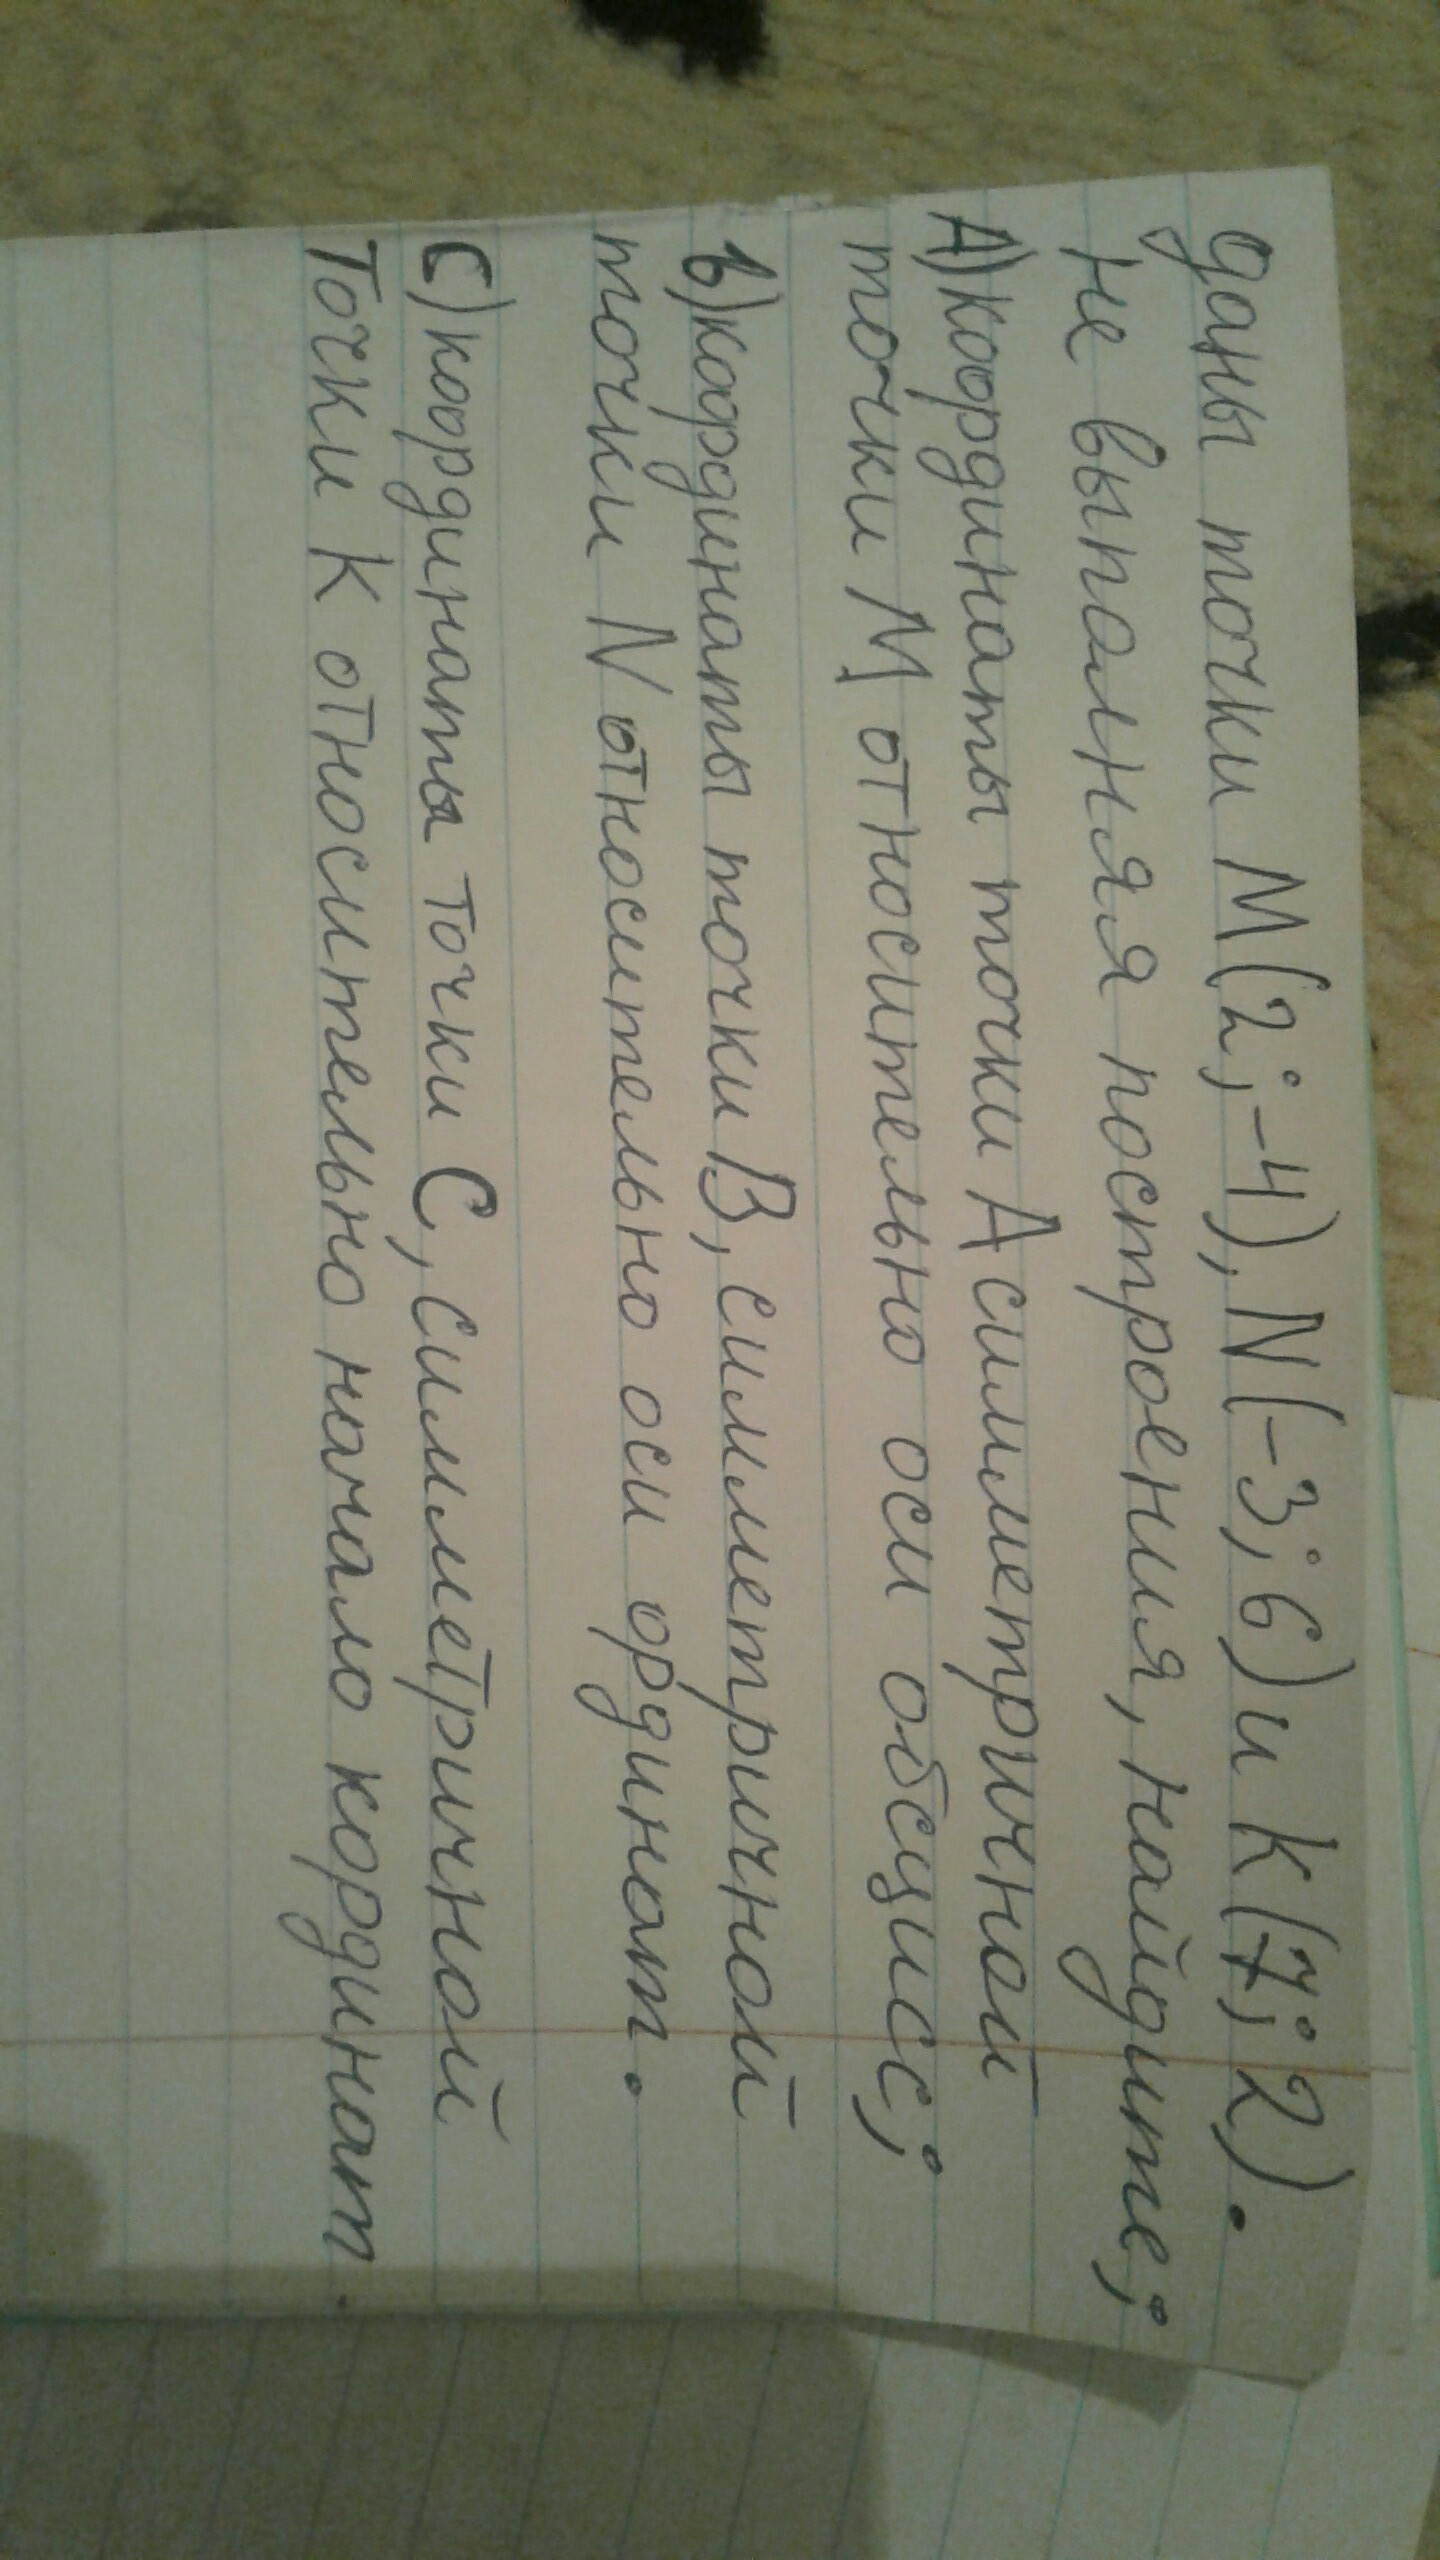 даны точки M(2;-4), N(-3;6) и K(7;2).
не выполняя построения, найдите;
A) кординаты точки A симметричной
точки M относительно оси обсцисс;
b) кординаты точки B, симметричной
точки N относительно оси ординат.
C) кординаты точки C, симметричной
Точки K относительно начало кординат.